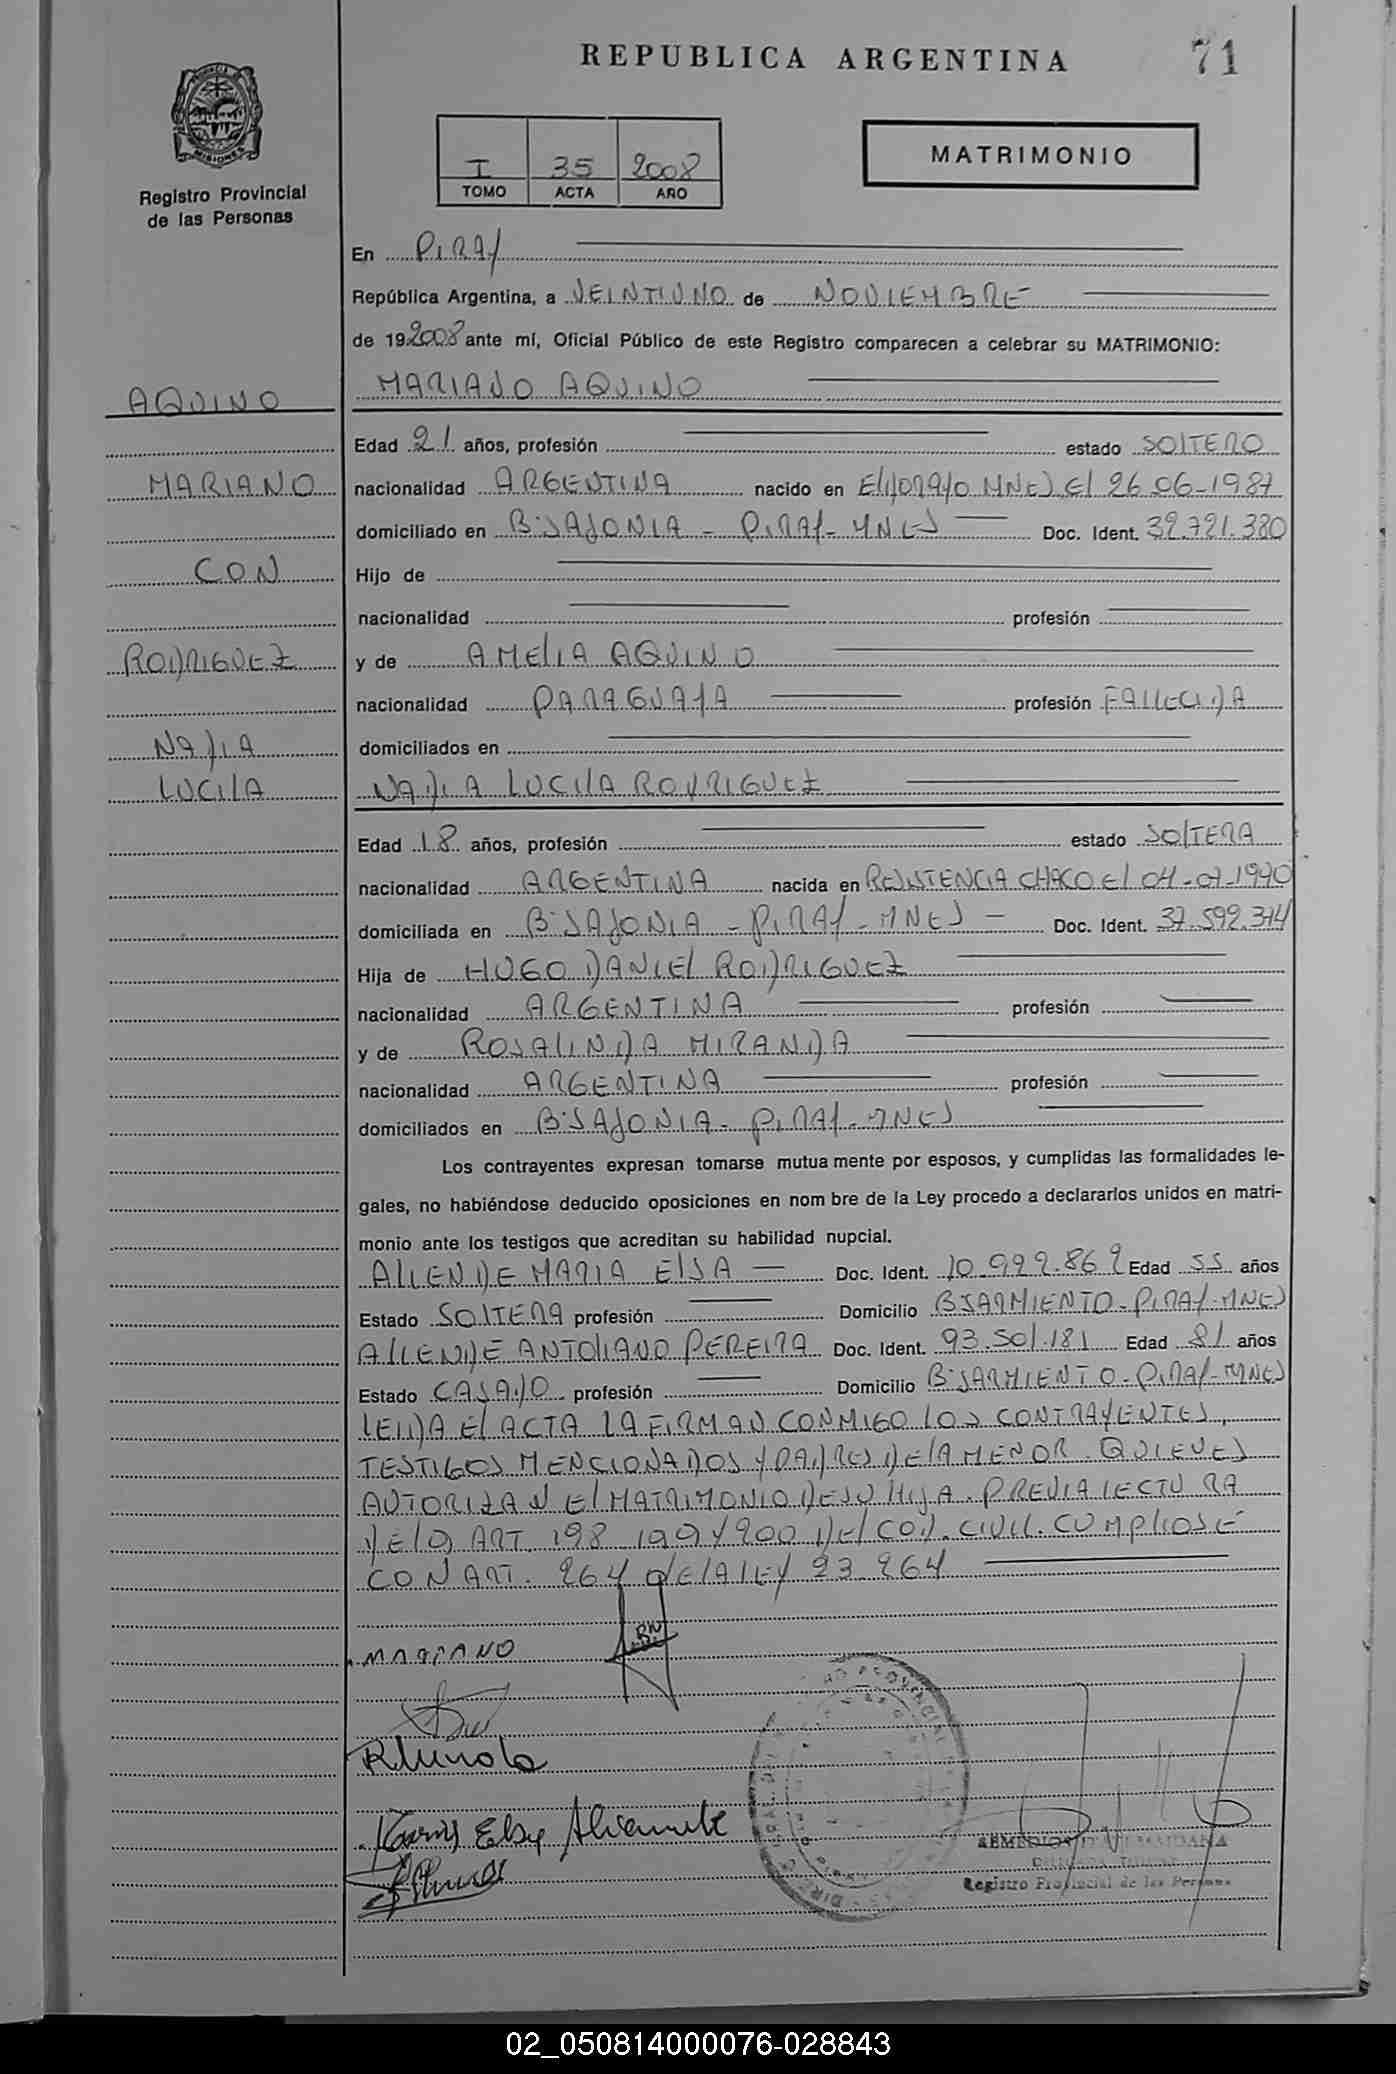 REPUBLICA ARGENTINA
71
PROVINCIA DE
MISIONES
Registro Provincial
de las Personas
I 35 2008
TOMO ACTA AÑO
MATRIMONIO
En PIRAY
República Argentina, a VEINTIUNO de NOVIEMBRE
de 192008 ante mí, Oficial Público de este Registro comparecen a celebrar su MATRIMONIO:
AQUINO
MARIANO AQUINO
Edad 21 años, profesión estado SOLTERO
MARIANO
nacionalidad ARGENTINA nacido en ELDORADO MNES EL 26-06-1987
domiciliado en Bº SAJONIA - PIRAY - MNES Doc. Ident. 32.721.380
CON
Hijo de
nacionalidad profesión
RODRIGUEZ
y de AMELIA AQUINO
nacionalidad PARAGUAYA profesión FALLECIDA
NADIA
domiciliados en
LUCILA
NADIA LUCILA RODRIGUEZ
Edad 18 años, profesión estado SOLTERA
nacionalidad ARGENTINA nacida en RESISTENCIA CHACO EL 04-07-1990
domiciliada en Bº SAJONIA - PIRAY - MNES Doc. Ident. 37.592.374
Hija de HUGO DANIEL RODRIGUEZ
nacionalidad ARGENTINA profesión
y de ROSALINDA MIRANDA
nacionalidad ARGENTINA profesión
domiciliados en Bº SAJONIA - PIRAY - MNES
Los contrayentes expresan tomarse mutua mente por esposos, y cumplidas las formalidades le-
gales, no habiéndose deducido oposiciones en nom bre de la Ley procedo a declararlos unidos en matri-
monio ante los testigos que acreditan su habilidad nupcial.
ALLENDE MARIA ELSA Doc. Ident. 10.992.869 Edad 55 años
Estado SOLTERA profesión Domicilio Bº SARMIENTO - PIRAY - MNES
ALLENDE ANTOLIANO PEREIRA Doc. Ident. 93.501.181 Edad 81 años
Estado CASADO profesión Domicilio Bº SARMIENTO - PIRAY - MNES
LEIDA EL ACTA LA FIRMAN CONMIGO LOS CONTRAYENTES,
TESTIGOS MENCIONADOS Y PADRES DE LA MENOR QUIENES
AUTORIZAN EL MATRIMONIO DE SU HIJA. PREVIA LECTURA
DE LOS ART. 198 199 Y 200 DEL COD. CIVIL. CUMPLIOSE
CON ART. 264 DE LA LEY 23.264
MARIANO
Registro Provincial de las Personas
02_050814000076-028843